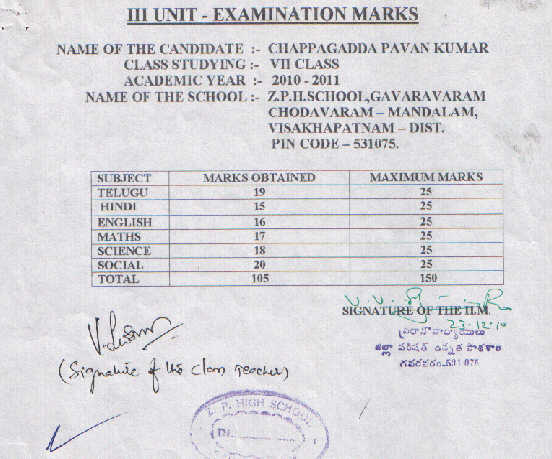 III UNIT - EXAMINATION MARKS
NAME OF THE CANDIDATE :- CHAPPAGADDA PAVAN KUMAR
CLASS STUDYING :- VII CLASS
ACADEMIC YEAR :- 2010 - 2011
NAME OF THE SCHOOL :- Z.P.H.SCHOOL,GAVARAVARAM
CHODAVARAM – MANDALAM,
VISAKHAPATNAM – DIST.
PIN CODE – 531075.
SUBJECT MARKS OBTAINED MAXIMUM MARKS
TELUGU 19 25
HINDI 15 25
ENGLISH 16 25
MATHS 17 25
SCIENCE 18 25
SOCIAL 20 25
TOTAL 105 150
SIGNATURE OF THE H.M.
23-12-10
ప్రధానోపాధ్యాయులు
జిల్లా పరిషత్ ఉన్నత పాఠశాల
గవరవరం-531 075
(Signature of the class teacher)
Z. P. HIGH SCHOOL